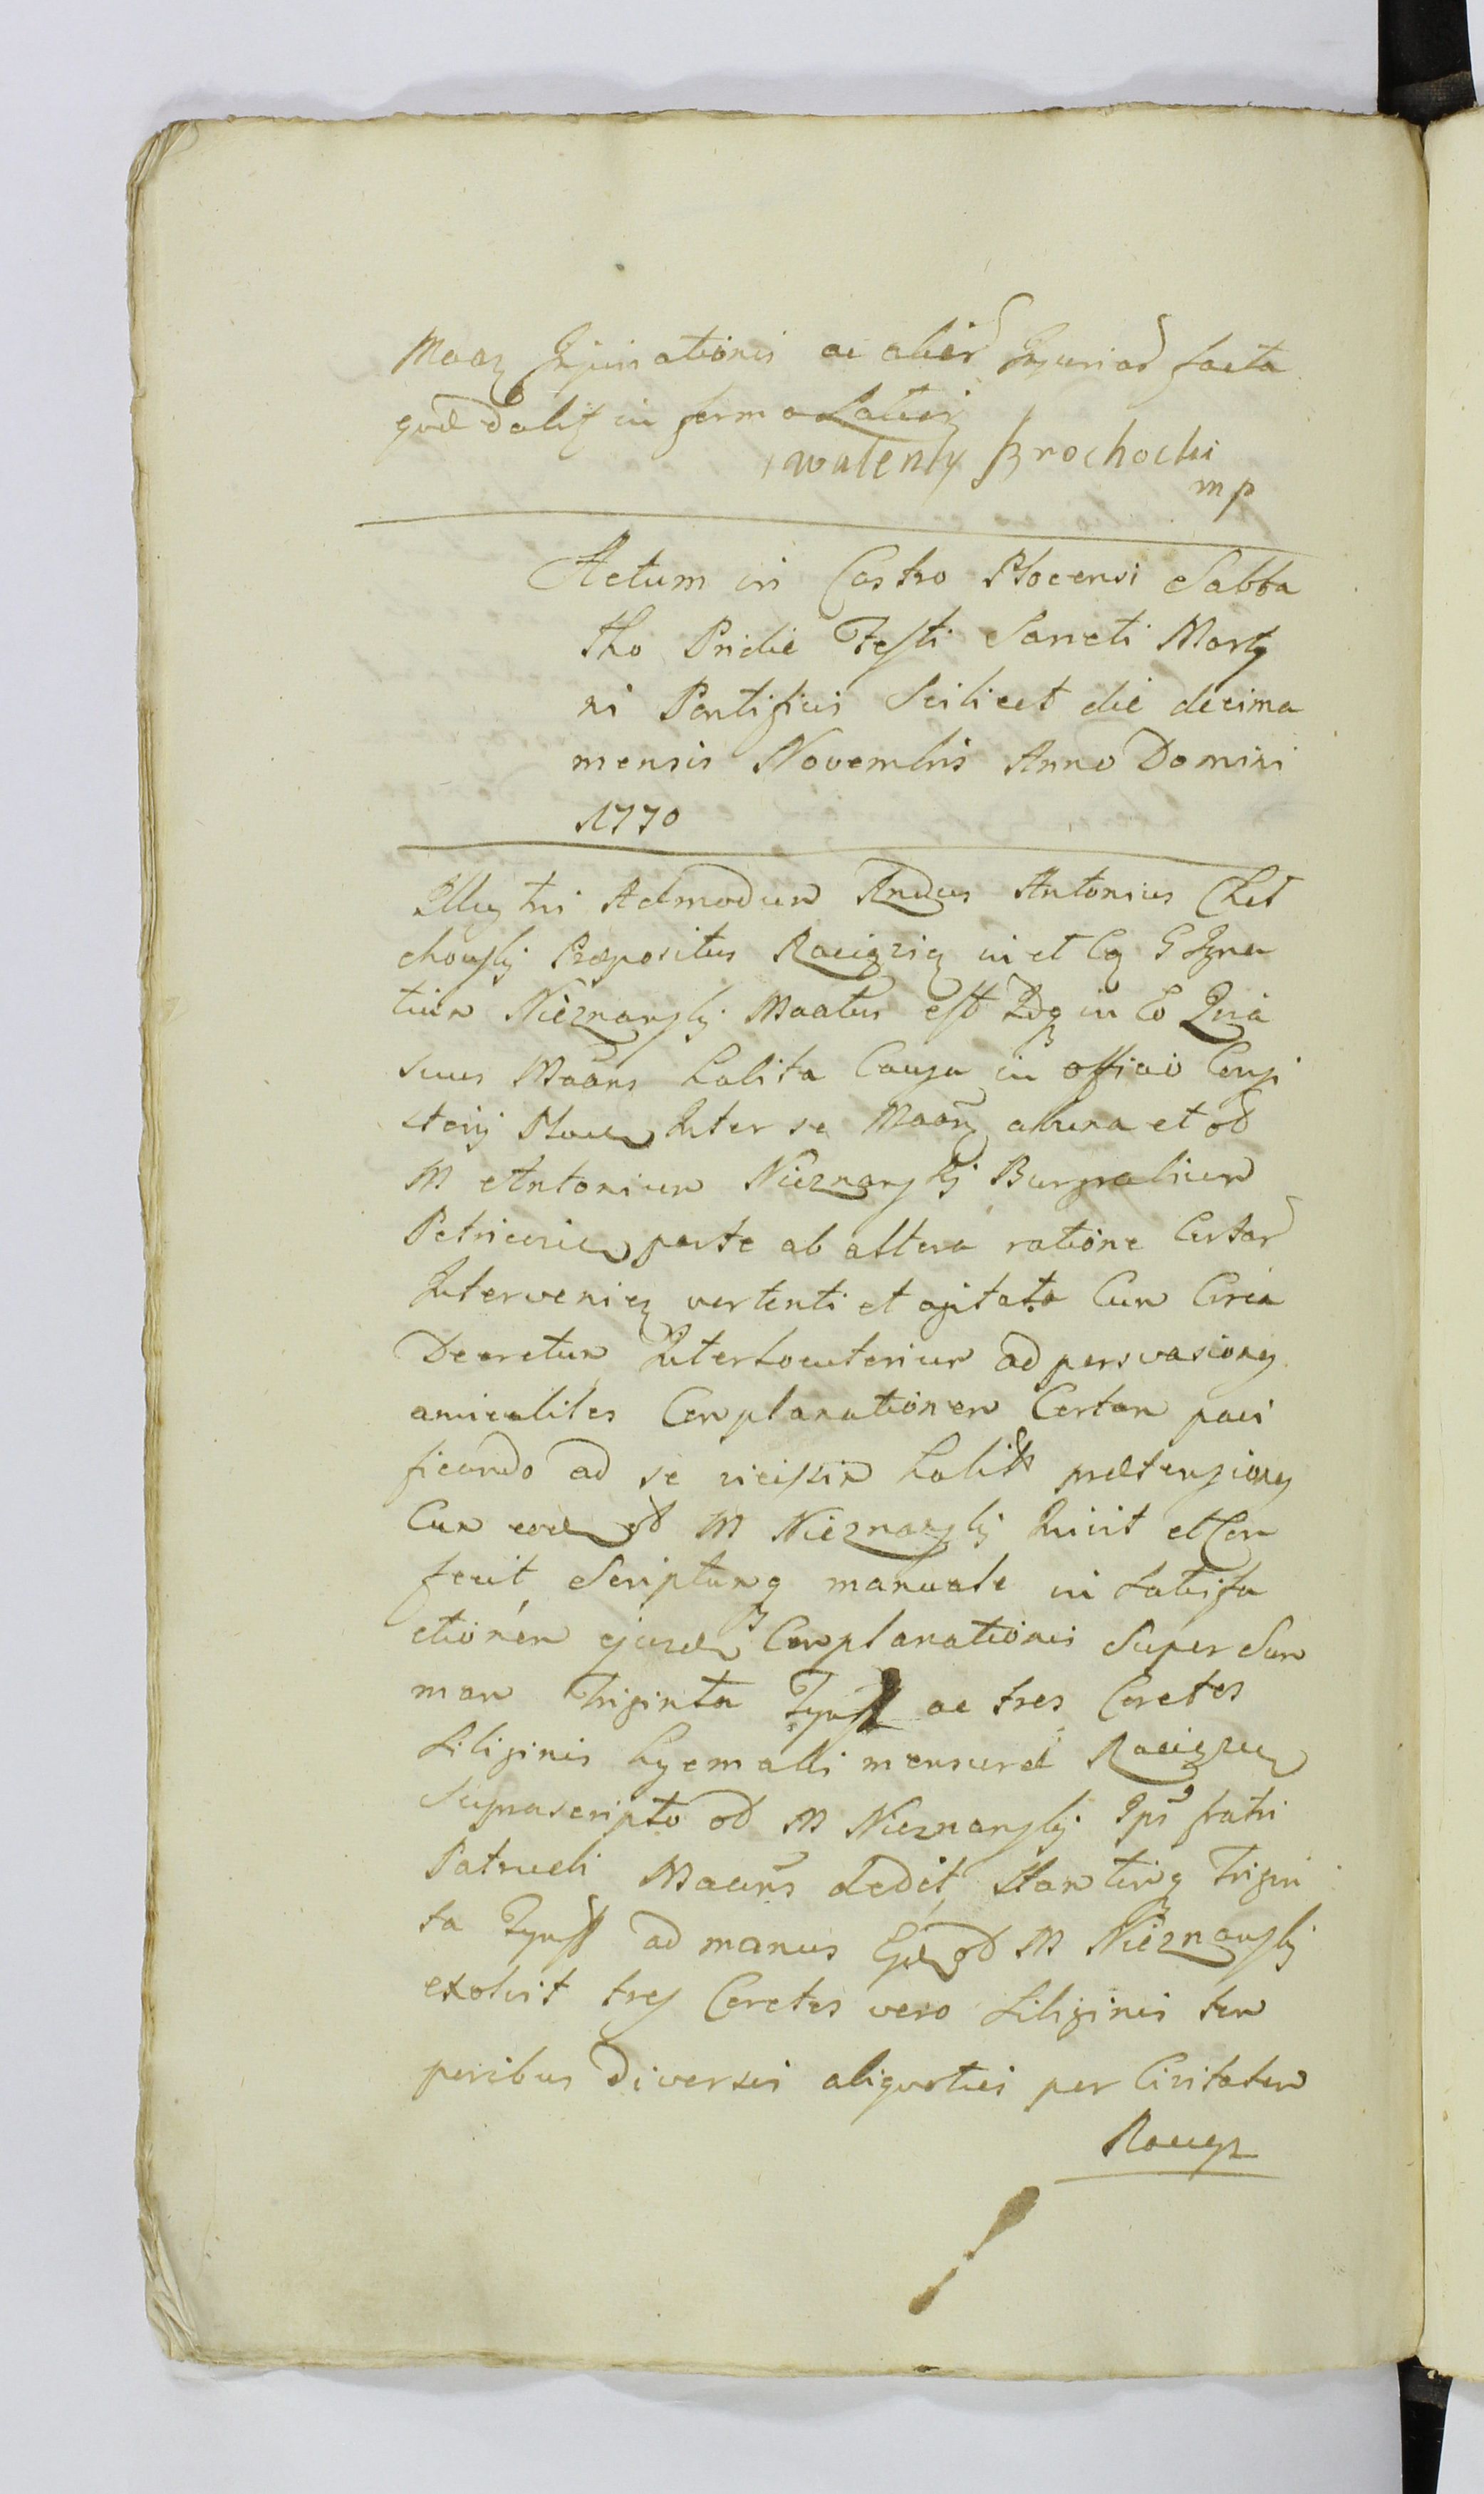 Maaz Injuriationis ac aliar Injuriar facta
quæ dalz in forma Latiori
Walenty Brochocki
mp
Actum in Castro Plocensi Sabba
tho Pridie Festi Sancti Marty
ni Pontificis Scilicet die decima
mensis Novembris Anno Domini
1770
Illustris Admodum Rndus Antonius Chel
chowskj Præpositus Raciąziz in et Cg G Igna
tium Nieznanskj Maatus est Idq in Eo Quia
suus Maans habita Causa in officio Consi
storij Plocen Inter se Maanz ab una et od
M Antonium Nieznanskj Burgrabium
Petricovien parte ab altera ratione Certar
Intervenien vertenti et agitata Cum Circa
Decretum Interlocutorium ad persvasiones
amicabiles Complanationem Certam paci
ficando ad se vicissim habitas prætensiones
Cum eodem od M Nieznanskj Inivit et Con
fecit, Scriptumq manuale in Satisfa
ctionem ejusdem Complanationis Super Sum
mam Triginta Tynff ac tres Coretos
Siliginis hyemalis mensuræ Raciązien
Suprascripto od M Nieznanskj Ips fratri
Patrueli Maans dedit, Stantibq Trigin
ta Tynff ad manus Ejdem od M Nieznanskj
exolvit tres Coretos vero Siliginis tem
poribus Diversis aliquoties per Civitatem
Raciąz